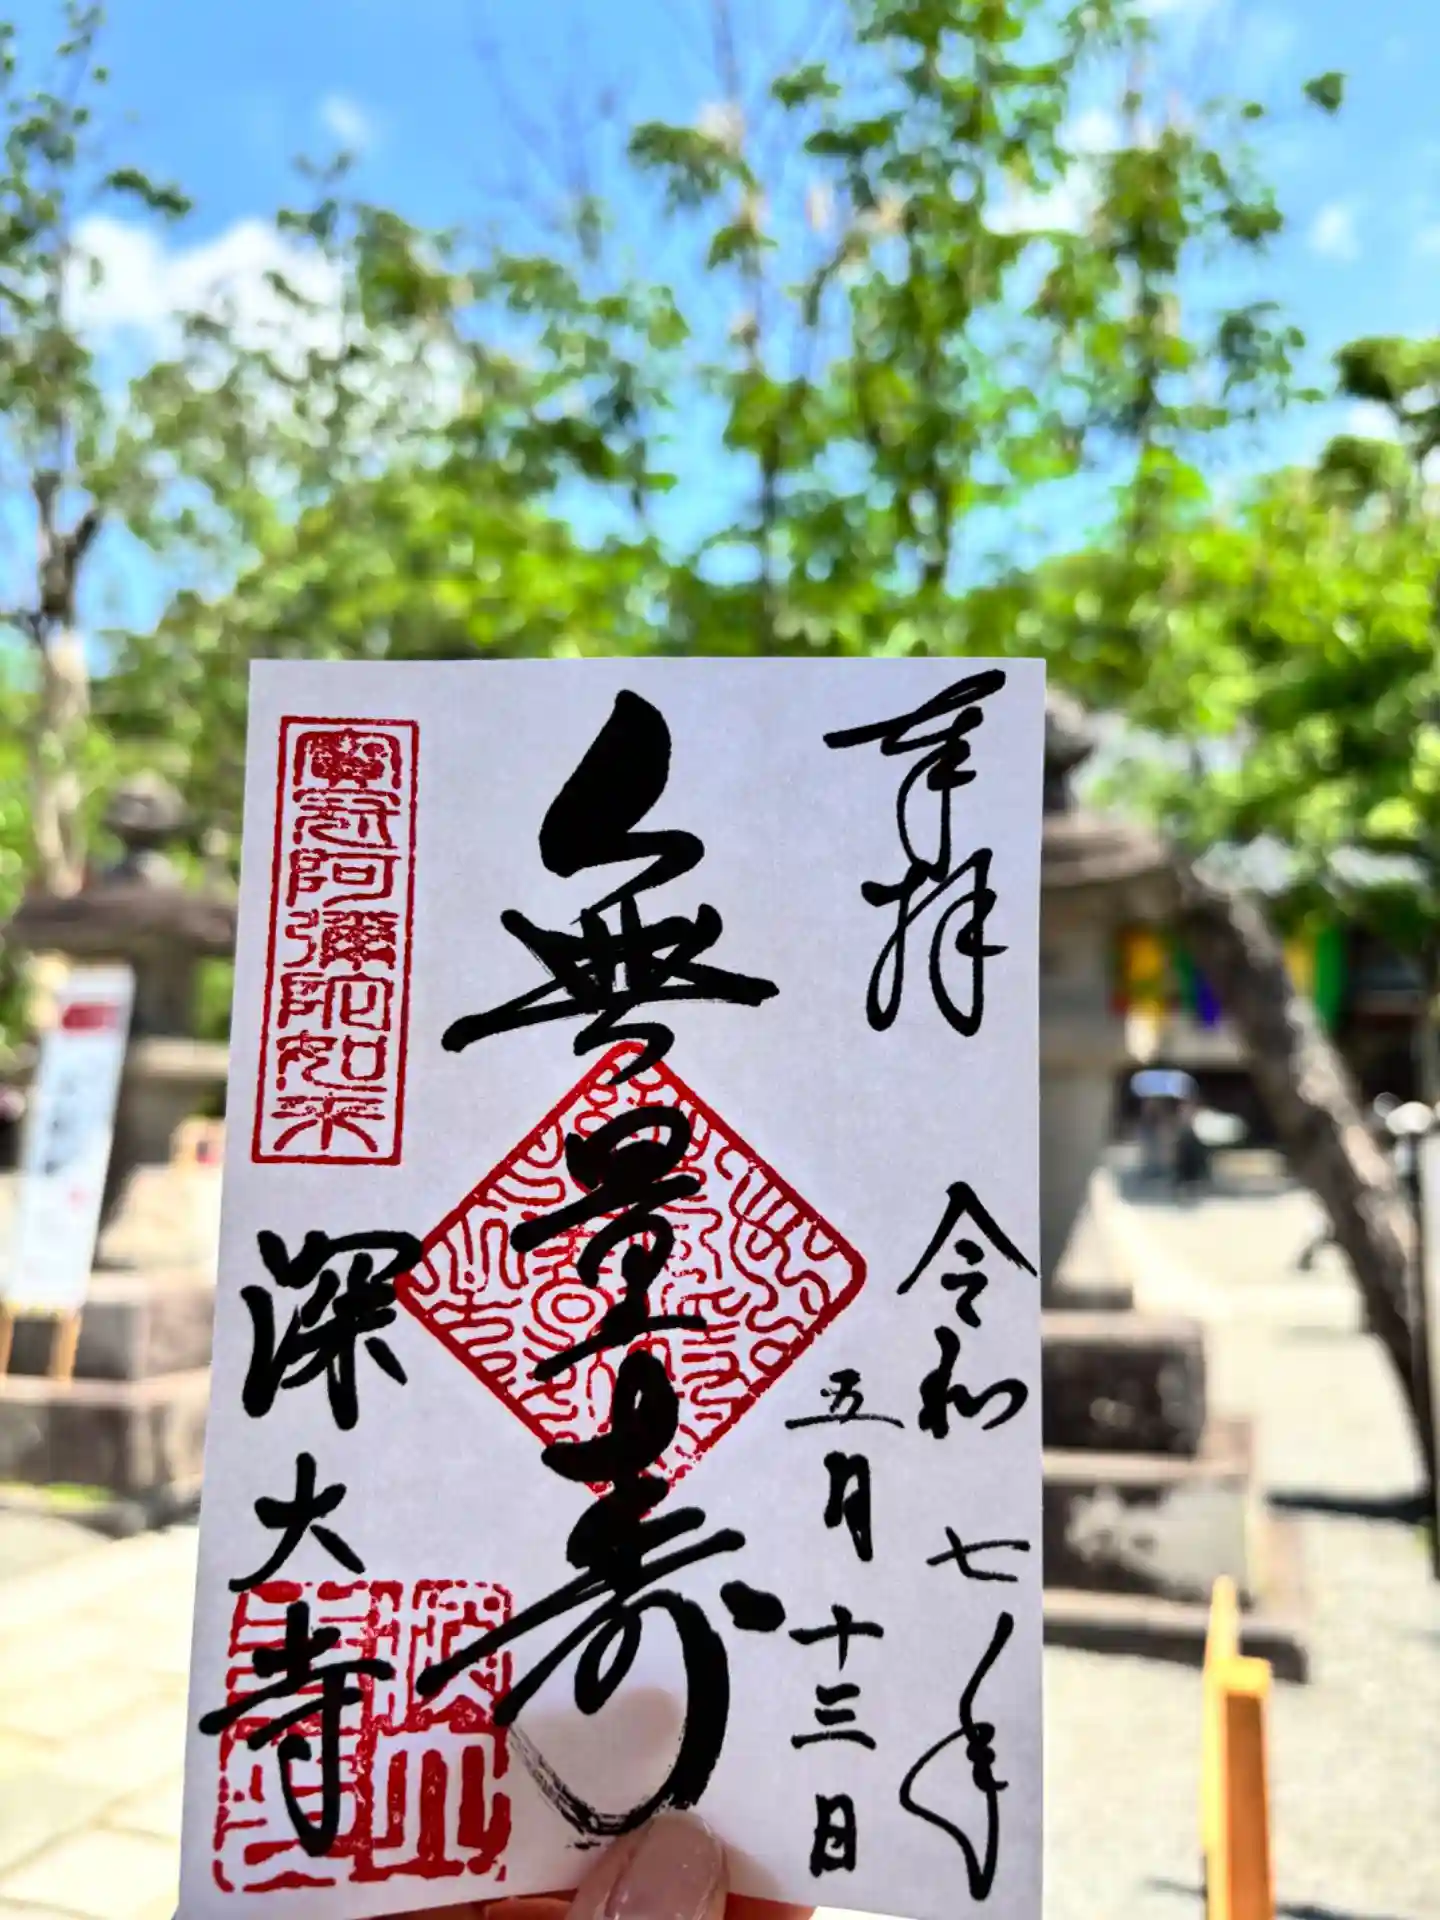 奉拝
令和七年
五月十三日
無量寿
寳冠阿彌陀如来
深大寺